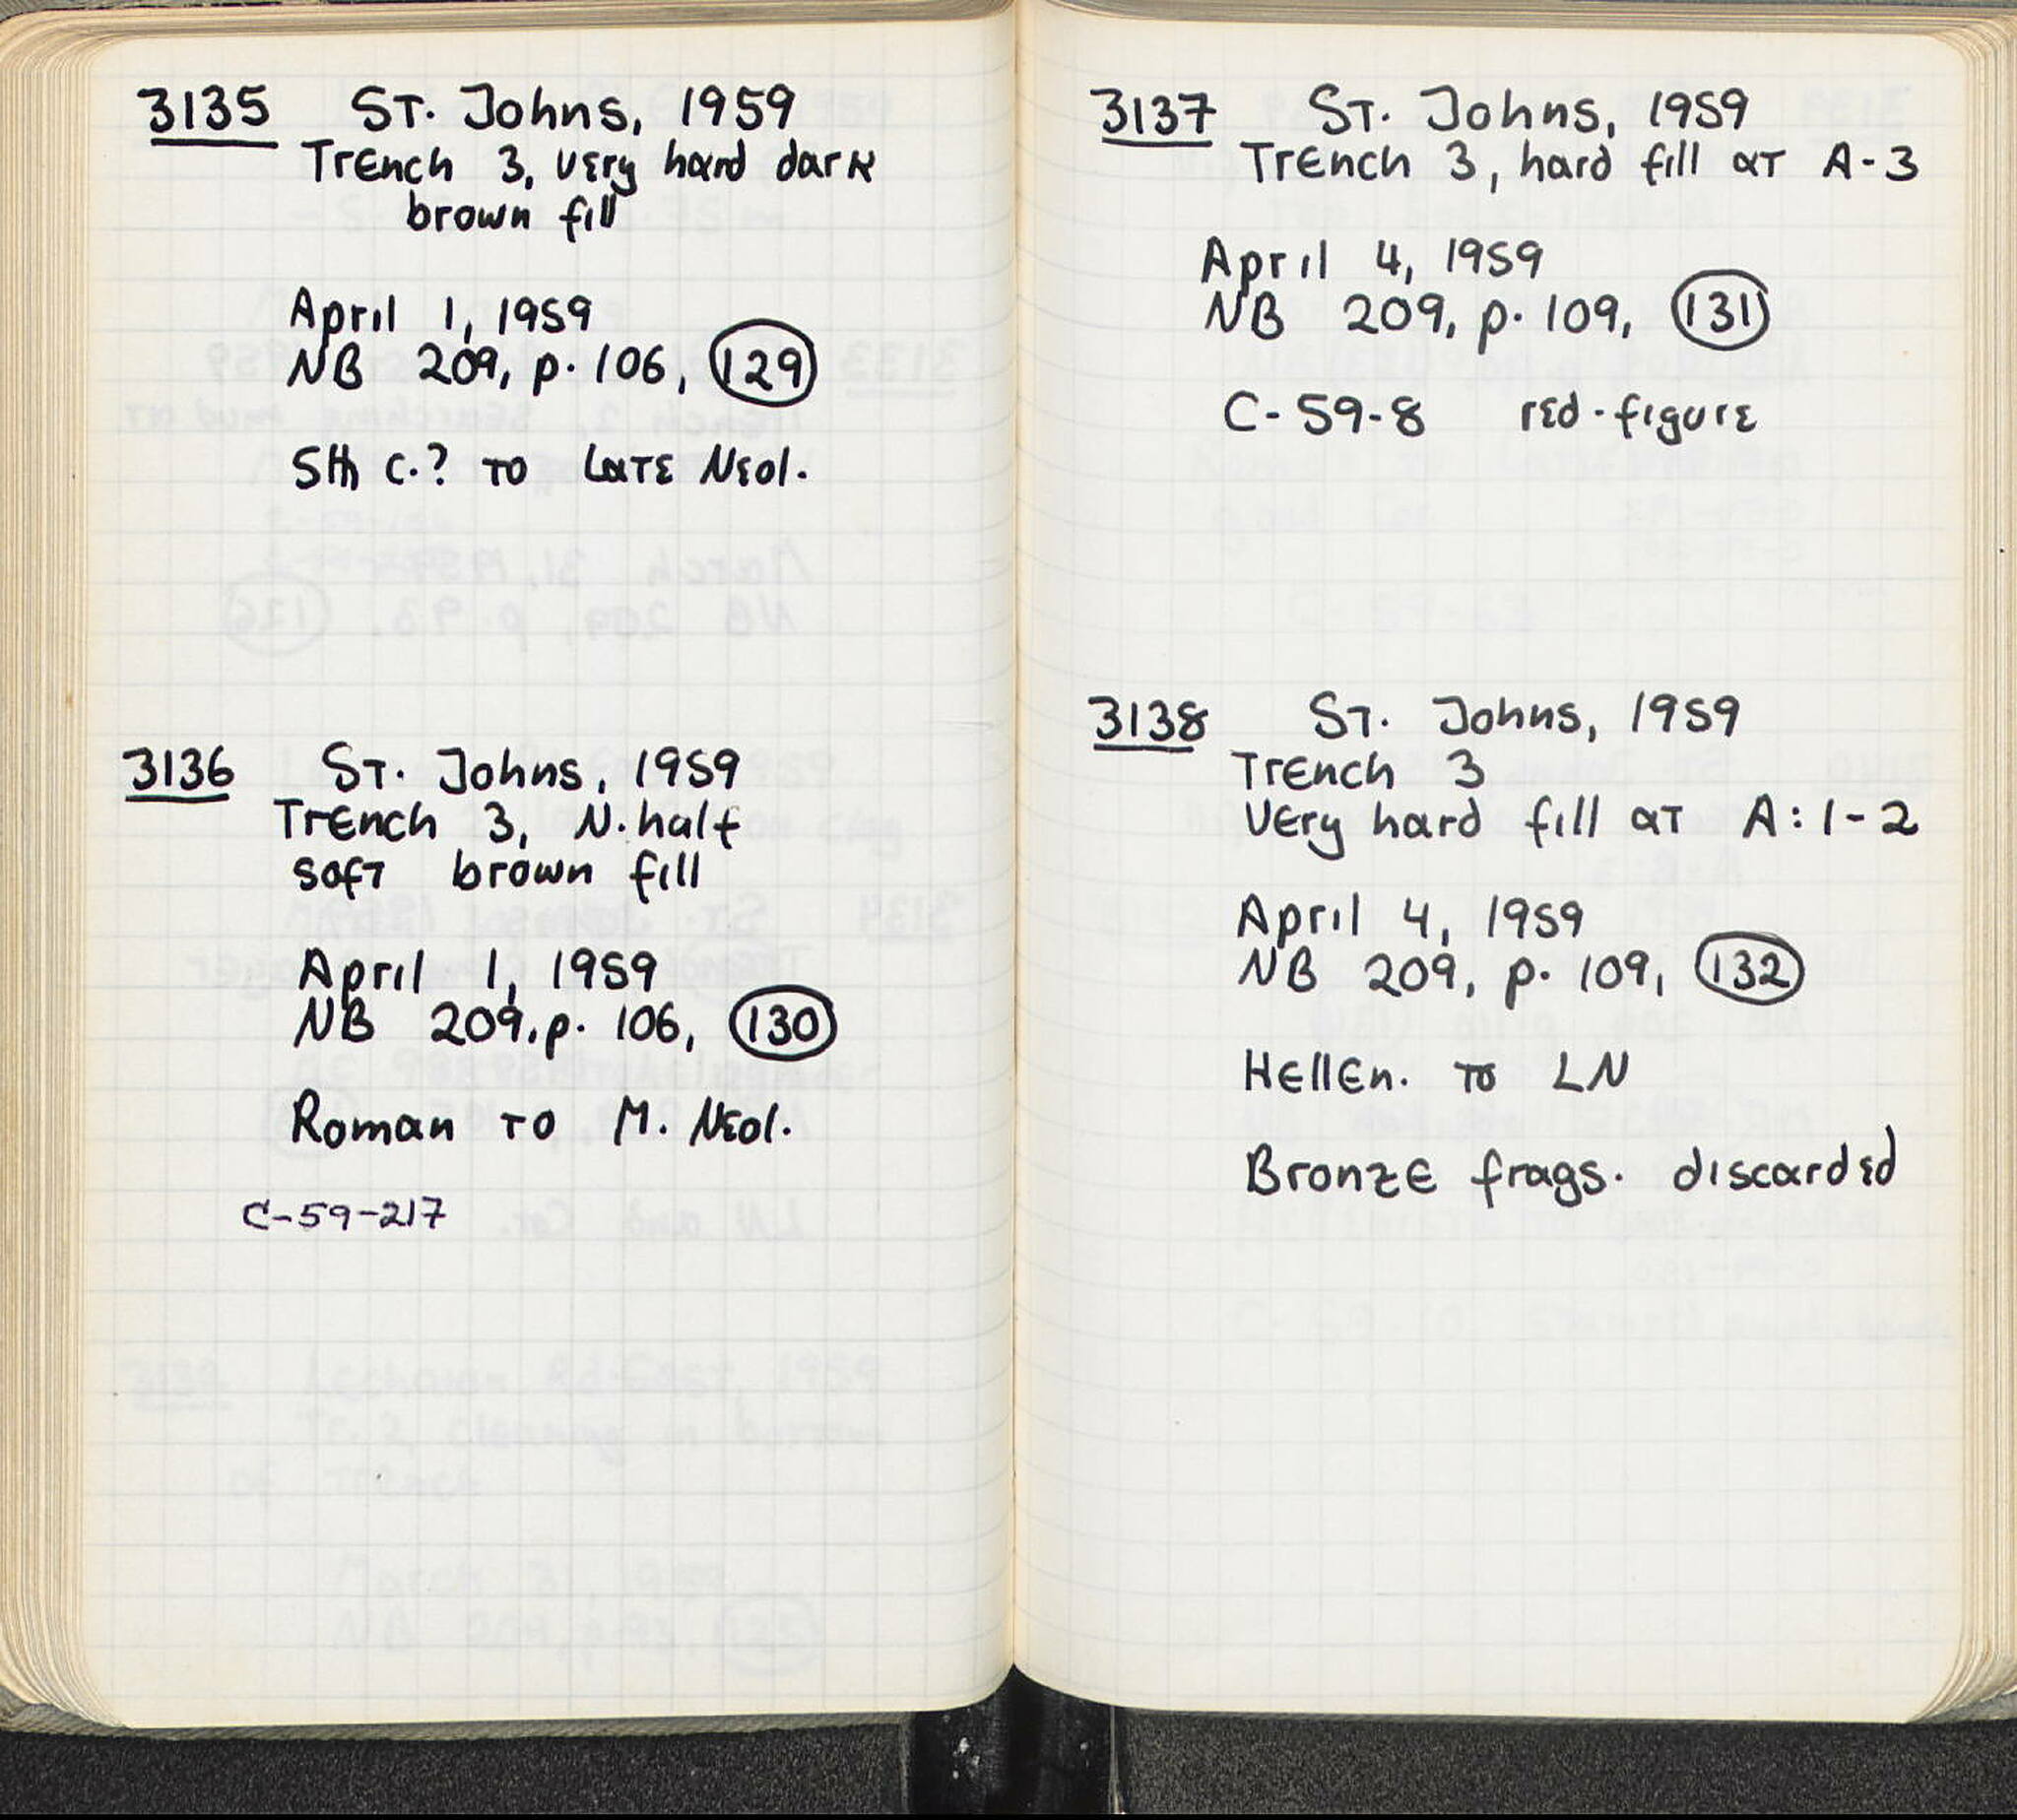 3135 St. Johns, 1959
Trench 3, very hard dark
brown fill
April 1, 1959
NB 209, p. 106, 129
5th c.? to Late Neol.
3136 St. Johns, 1959
Trench 3, N. half
soft brown fill
April 1, 1959
NB 209, p. 106, 130
Roman to M. Neol.
C-59-217
3137 St. Johns, 1959
Trench 3, hard fill at A-3
April 4, 1959
NB 209, p. 109, 131
C-59-8 red-figure
3138 St. Johns, 1959
Trench 3
very hard fill at A:1-2
April 4, 1959
NB 209, p. 109, 132
Hellen. to LN
Bronze frags. discarded